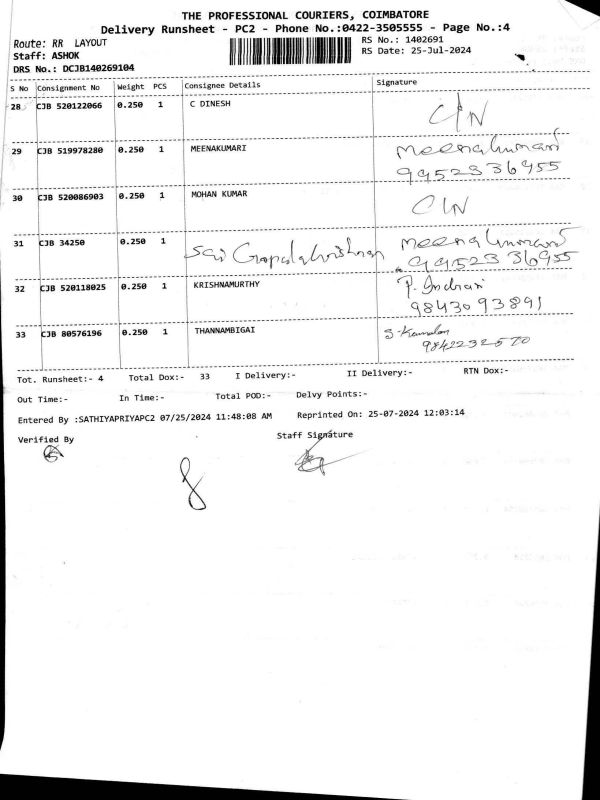 THE PROFESSIONAL COURIERS, COIMBATORE
Delivery Runsheet - PC2 - Phone No.:0422-3505555 - Page No.:4
Route: RR LAYOUT
RS No.: 1402691
Staff: ASHOK
RS Date: 25-Jul-2024
DRS No.: DCJB140269104
S No Consignment No Weight PCS Consignee Details Signature
28 CJB 520122066 0.250 1 C DINESH
29 CJB 519978280 0.250 1 MEENAKUMARI Meenakumari
9952336955
30 CJB 520086903 0.250 1 MOHAN KUMAR
31 CJB 34250 0.250 1 Sai Gopalakrishnan Meenakumari
9952336955
32 CJB 520118025 0.250 1 KRISHNAMURTHY P. Indrani
9843093891
33 CJB 80576196 0.250 1 THANNAMBIGAI
9842232570
Tot. Runsheet:- 4 Total Dox:- 33 I Delivery:- II Delivery:- RTN Dox:-
Out Time:- In Time:- Total POD:- Delvy Points:-
Entered By :SATHIYAPRIYAPC2 07/25/2024 11:48:08 AM Reprinted On: 25-07-2024 12:03:14
Verified By Staff Signature